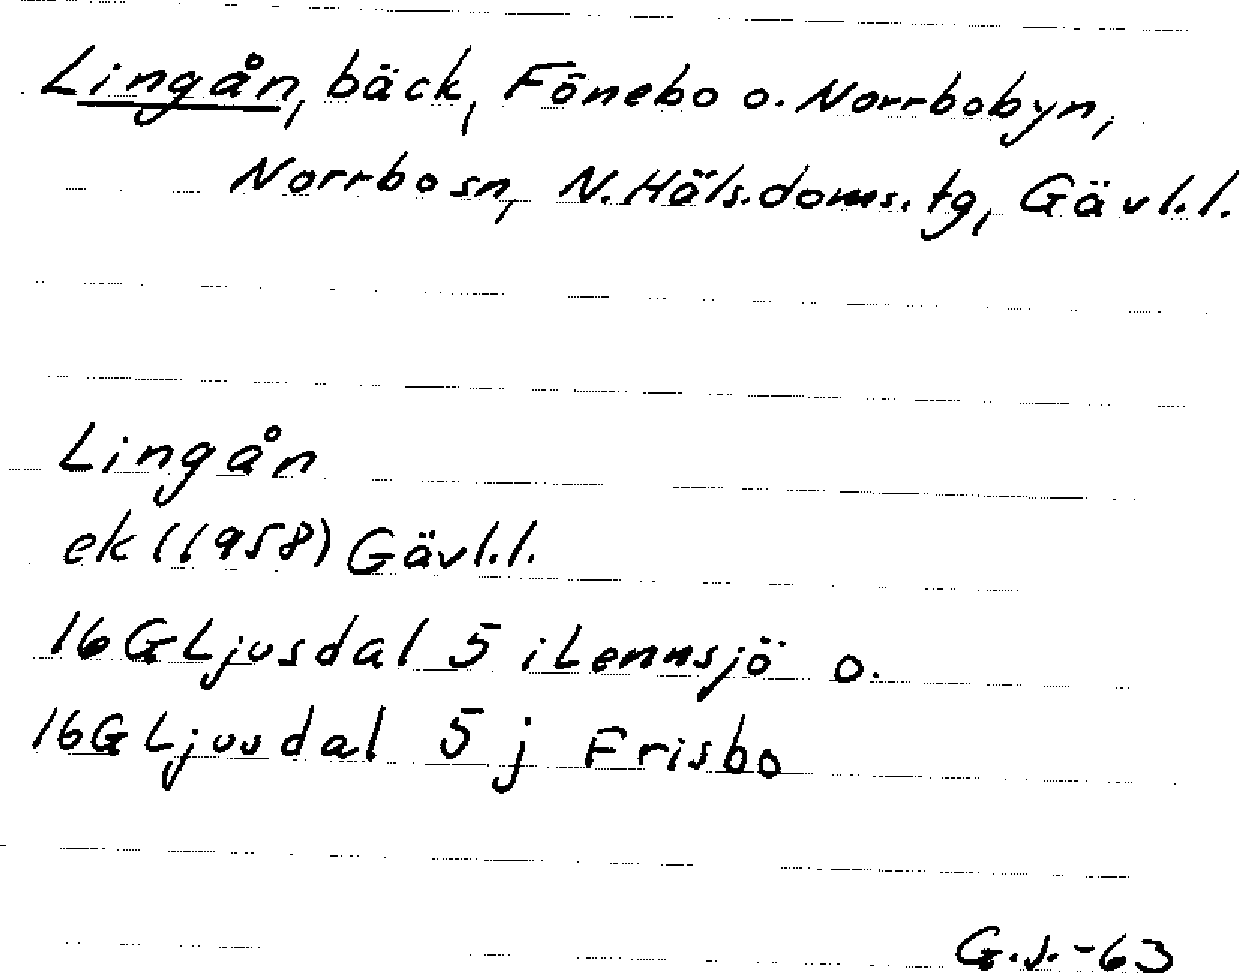 Lingån, bäck, Fönebo o. Norrbobyn,
Norrbo sn, N. Häls. doms. tg, Gävl. l.
Lingån
ek (1958) Gävl. l.
16G Ljusdal 5 i Lennsjö o.
16G Ljusdal 5 j Frisbo
G.J. -63